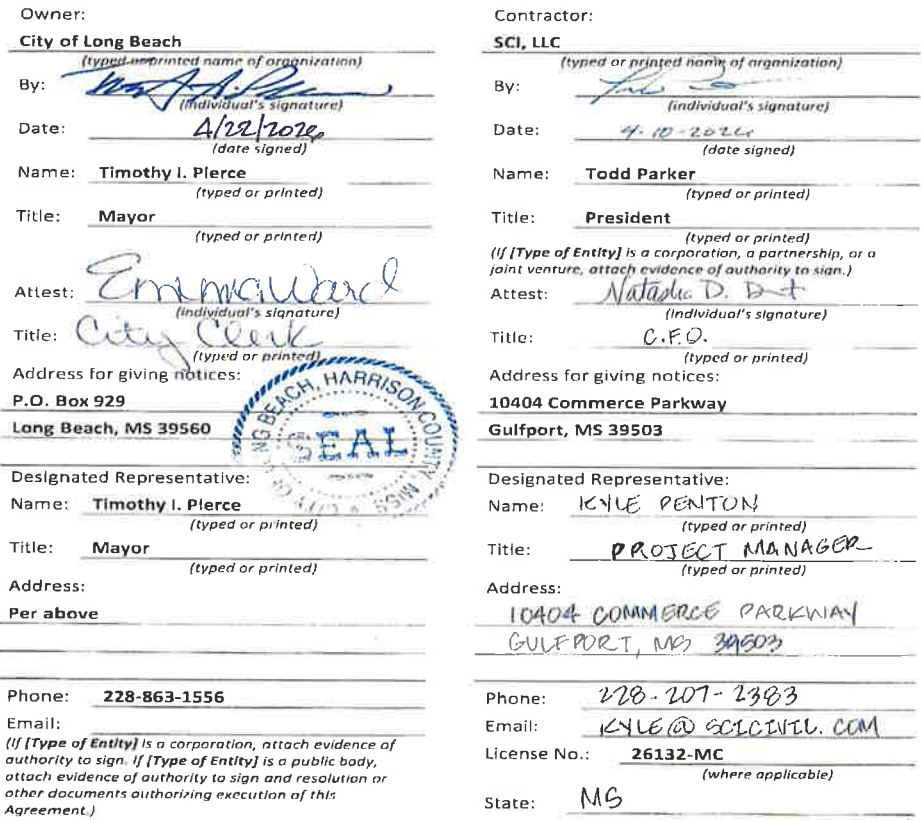 Owner:
City of Long Beach
(typed or printed name of organization)
By:
(individual's signature)
Date: 4/22/2026
(date signed)
Name: Timothy I. Pierce
(typed or printed)
Title: Mayor
(typed or printed)
Attest: Emma Ward
(individual's signature)
Title: City Clerk
(typed or printed)
Address for giving notices:
P.O. Box 929
Long Beach, MS 39560
CITY OF LONG BEACH, HARRISON COUNTY, MISS
SEAL
Designated Representative:
Name: Timothy I. Pierce
(typed or printed)
Title: Mayor
(typed or printed)
Address:
Per above
Phone: 228-863-1556
Email:
(If [Type of Entity] is a corporation, attach evidence of
authority to sign. If [Type of Entity] is a public body,
attach evidence of authority to sign and resolution or
other documents authorizing execution of this
Agreement.)
Contractor:
SCI, LLC
(typed or printed name of organization)
By:
(individual's signature)
Date:
(date signed)
Name: Todd Parker
(typed or printed)
Title: President
(typed or printed)
(If [Type of Entity] is a corporation, a partnership, or a
joint venture, attach evidence of authority to sign.)
Attest: Natasha D.
(individual's signature)
Title: C.F.O.
(typed or printed)
Address for giving notices:
10404 Commerce Parkway
Gulfport, MS 39503
Designated Representative:
Name: KYLE PENTON
(typed or printed)
Title: PROJECT MANAGER
(typed or printed)
Address:
10404 COMMERCE PARKWAY
GULFPORT, MS 39503
Phone: 228-207-2383
Email: KYLE@SCICIVIL.COM
License No.: 26132-MC
(where applicable)
State: MS